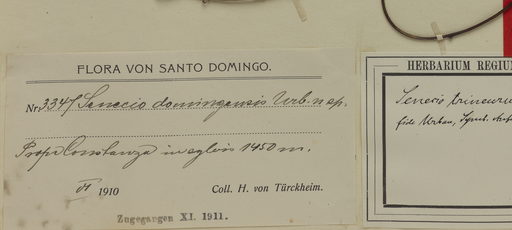 FLORA VON SANTO DOMINGO.
Nr. 3347 Senecio domingensis Urb. n. sp.
Prope Constanza in sylvis 1450 m.
VI 1910 Coll. H. von Türckheim.
Zugegangen XI. 1911.
HERBARIUM REGIU
Senecio trineur
fide Urban, Symb.